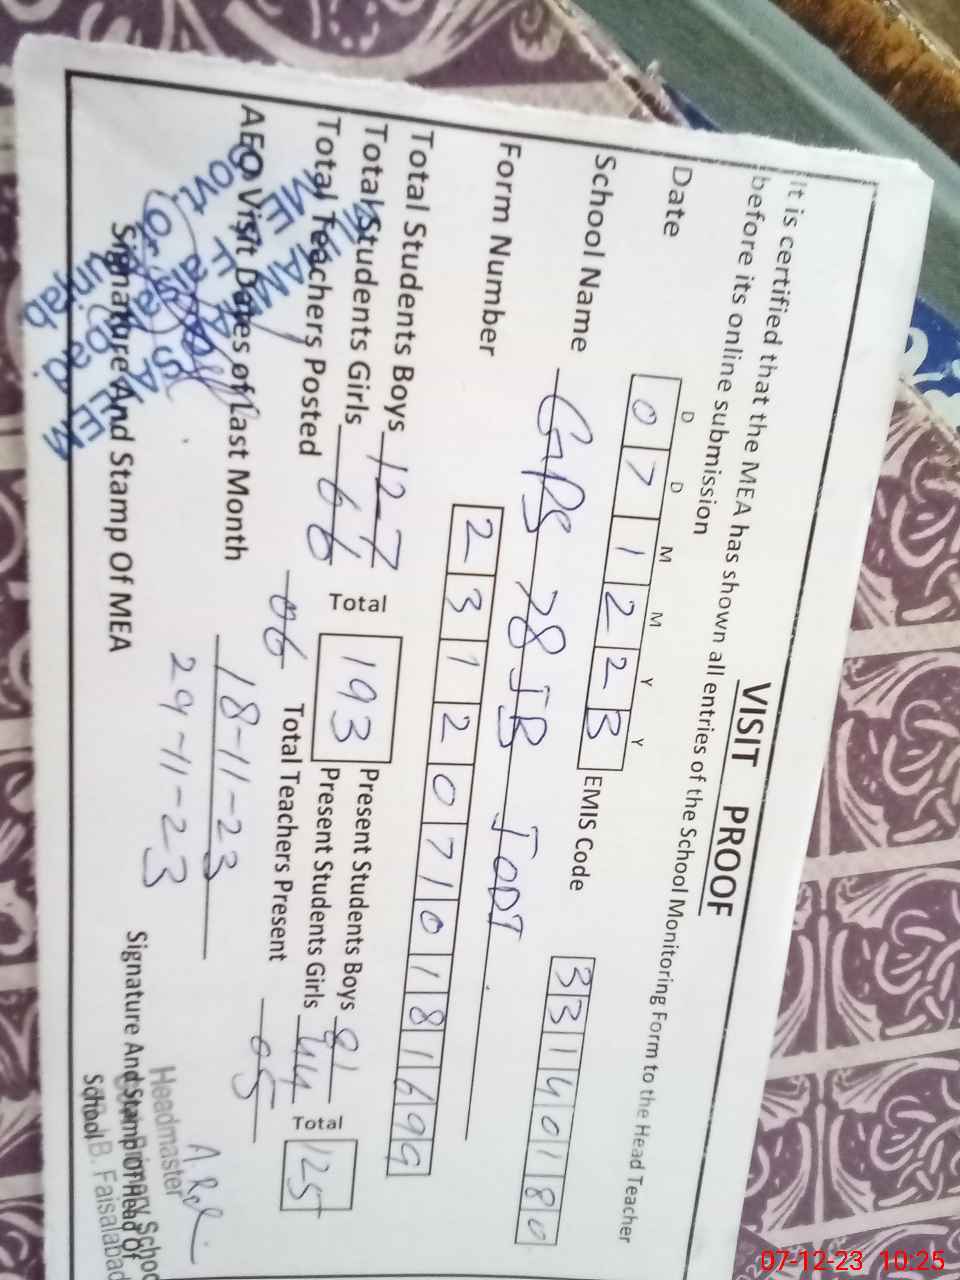 VISIT PROOF
It is certified that the MEA has shown all entries of the School Monitoring Form to the Head Teacher
before its online submission
D D M M Y Y
Date 0 7 1 2 2 3 EMIS Code 3 3 1 4 0 1 8 0
School Name GPS 78 JB JODT
Form Number 2 3 1 2 0 7 1 0 1 8 1 6 9 9
Total Students Boys 127 Total 193 Present Students Boys 81 Total 125
Total Students Girls 66 Present Students Girls 44
Total Teachers Posted 06 Total Teachers Present 05
AEO Visit Dates of Last Month 18-11-23
29-11-23
Signature And Stamp Of MEA
Signature And Stamp Of Head Of
School
SALEEM
Govt. of Punjab
Headmaster
School
J.B. Faisalabad
07-12-23 10:25